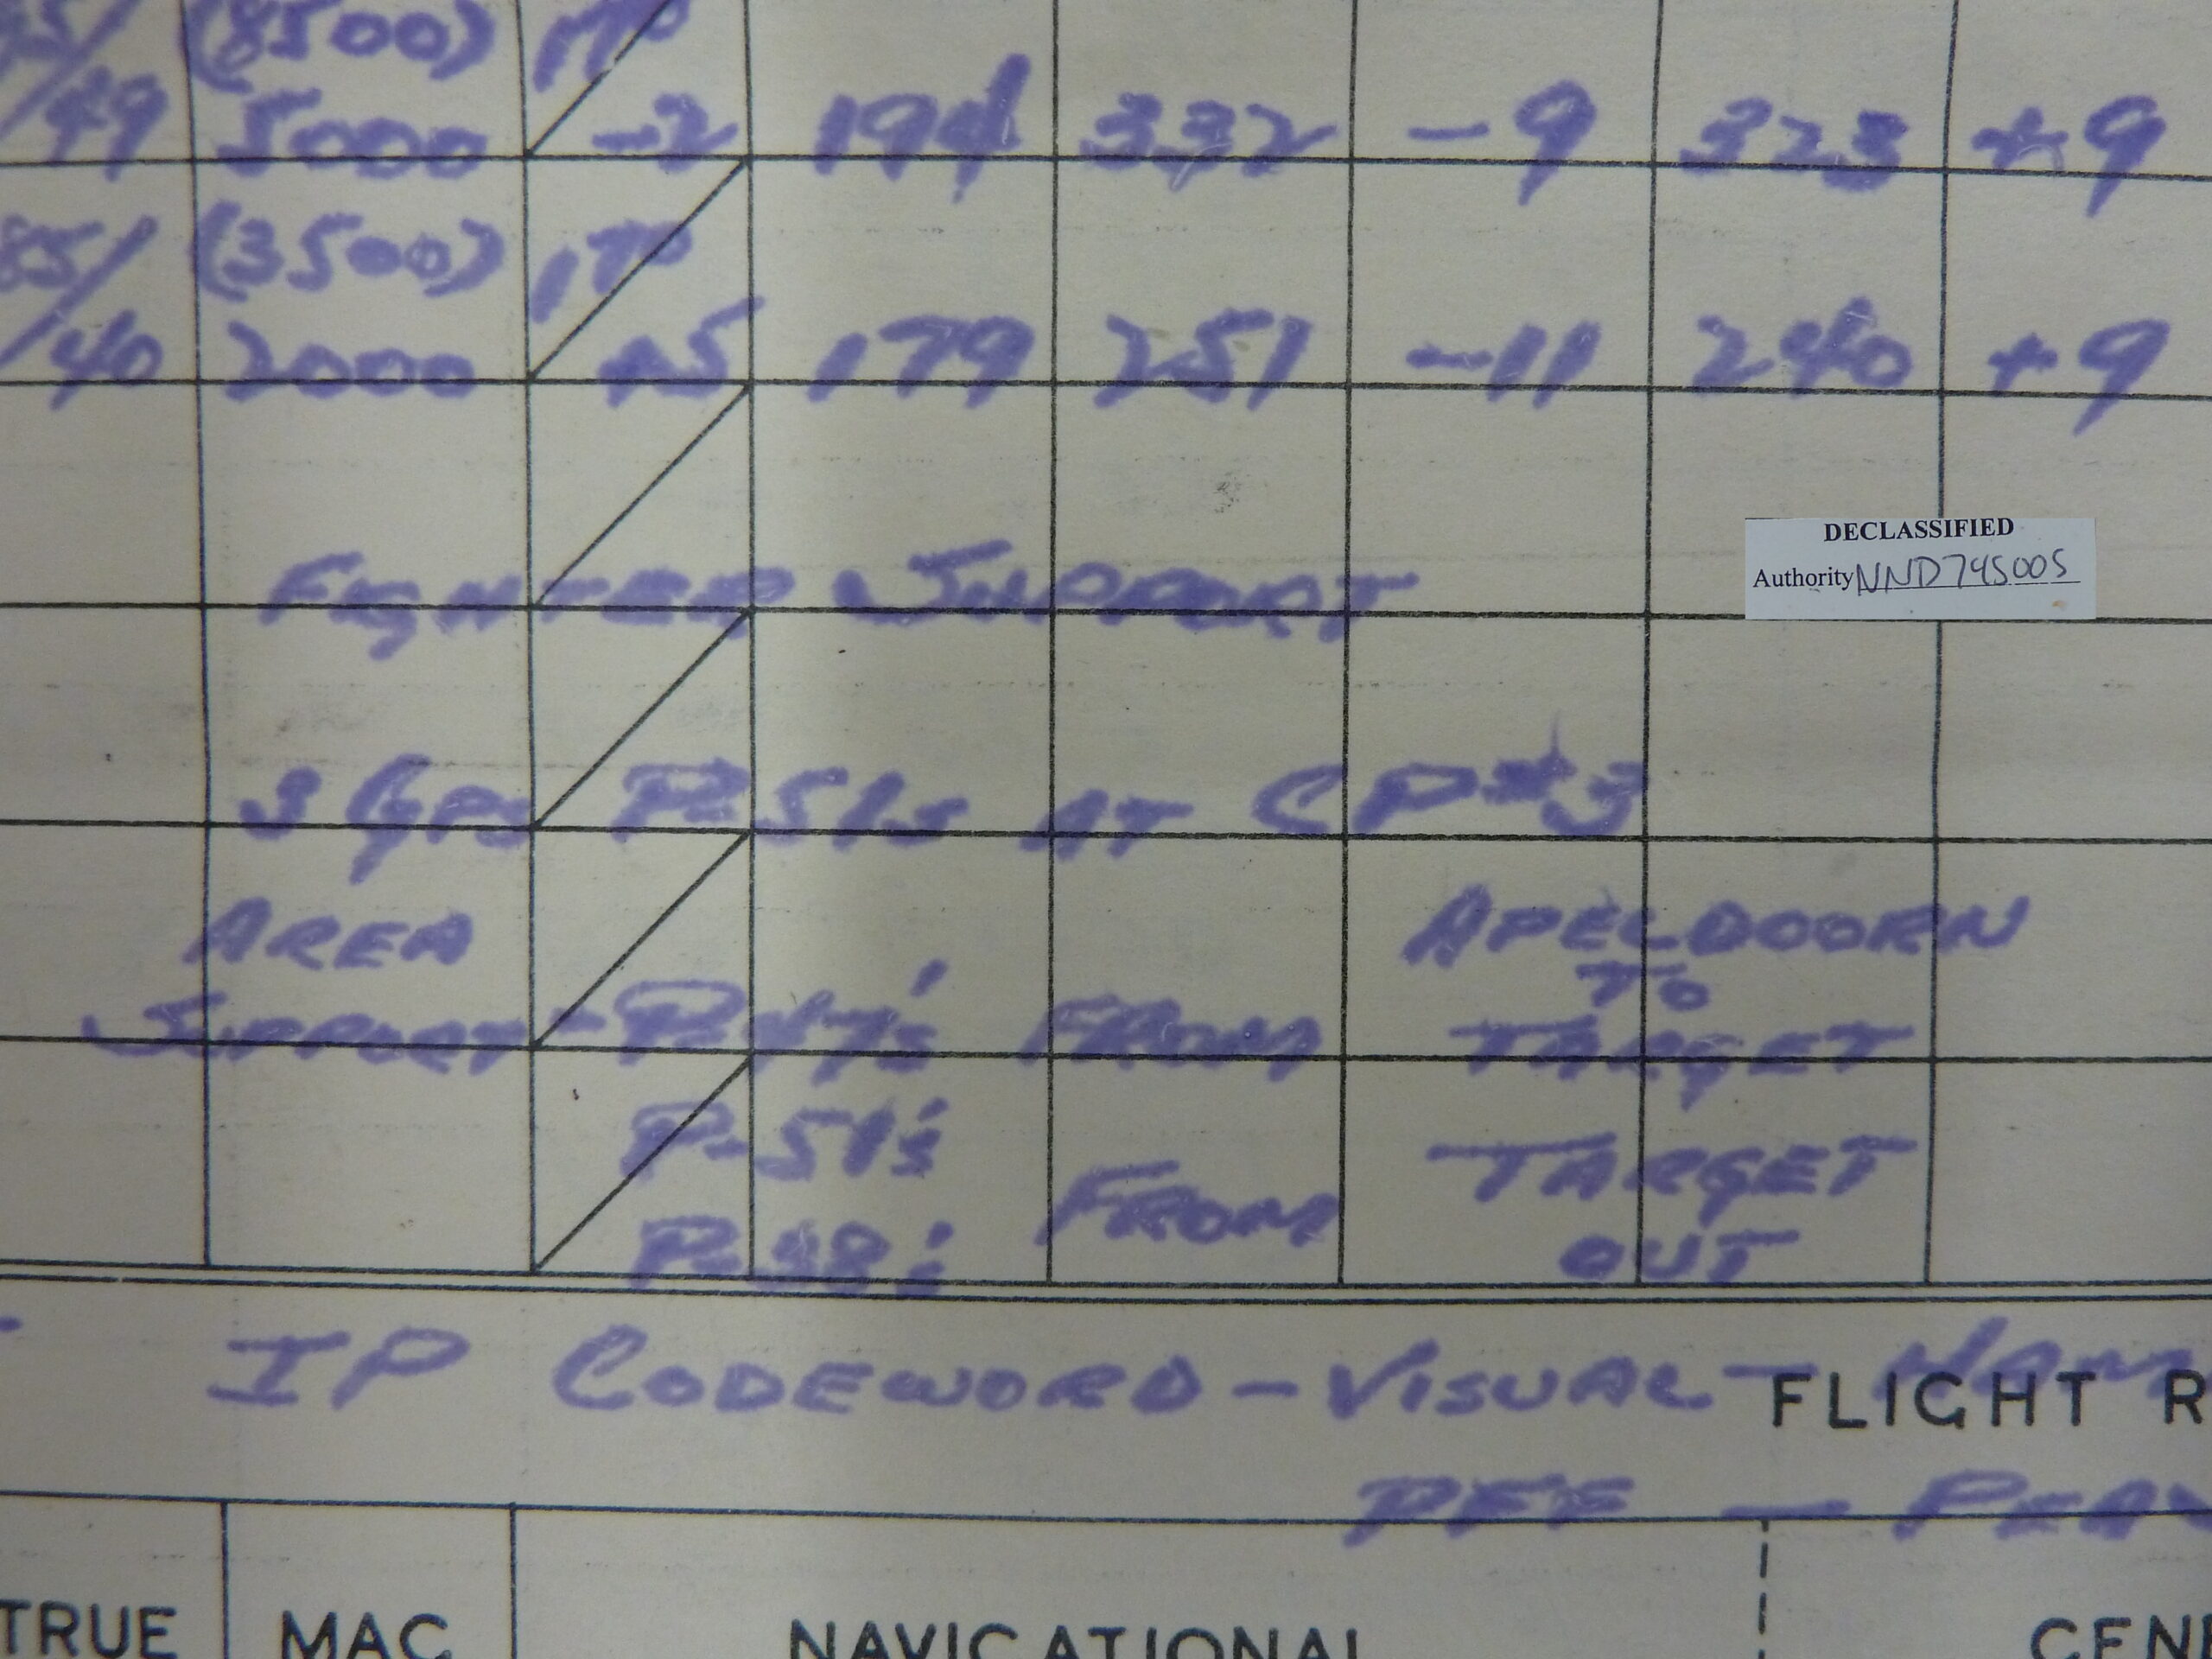 (8500) 170
49 5000 -2 194 332 -9 323 +9
85/ (3500) 170
40 2000 +5 179 251 -11 240 +9
DECLASSIFIED
Authority NND745005
FIGHTER SUPPORT
3 Gps P-51s AT CP#3
AREA APELDOORN
TO
SUPPORT-P-47's FROM TARGET
P-51's TARGET
FROM
P-38's OUT
IP CODEWORD - VISUAL - HAM
FLIGHT R
PFF - PEA
TRUE MAG NAVIGATIONAL GEN